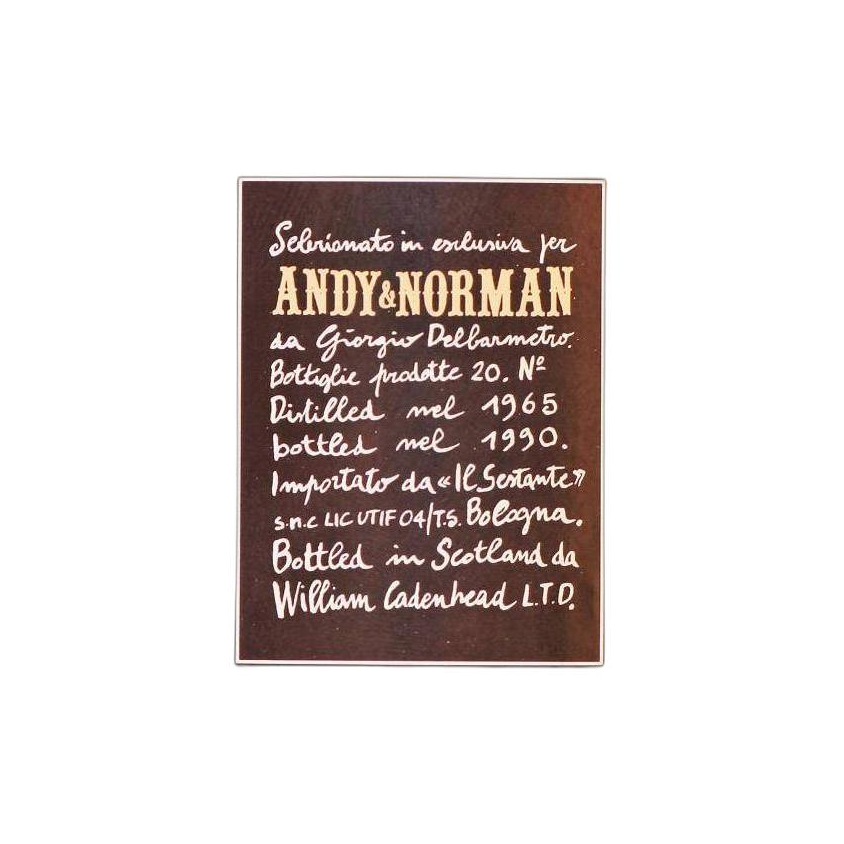 Selezionato in esclusiva per
ANDY & NORMAN
da Giorgio Delbarmetro.
Bottiglie prodotte 20. Nº
Distilled nel 1965
bottled nel 1990.
Importato da «Il Sestante»
s.n.c LIC UTIF 04/T.S. Bologna.
Bottled in Scotland da
William Cadenhead L.T.D.